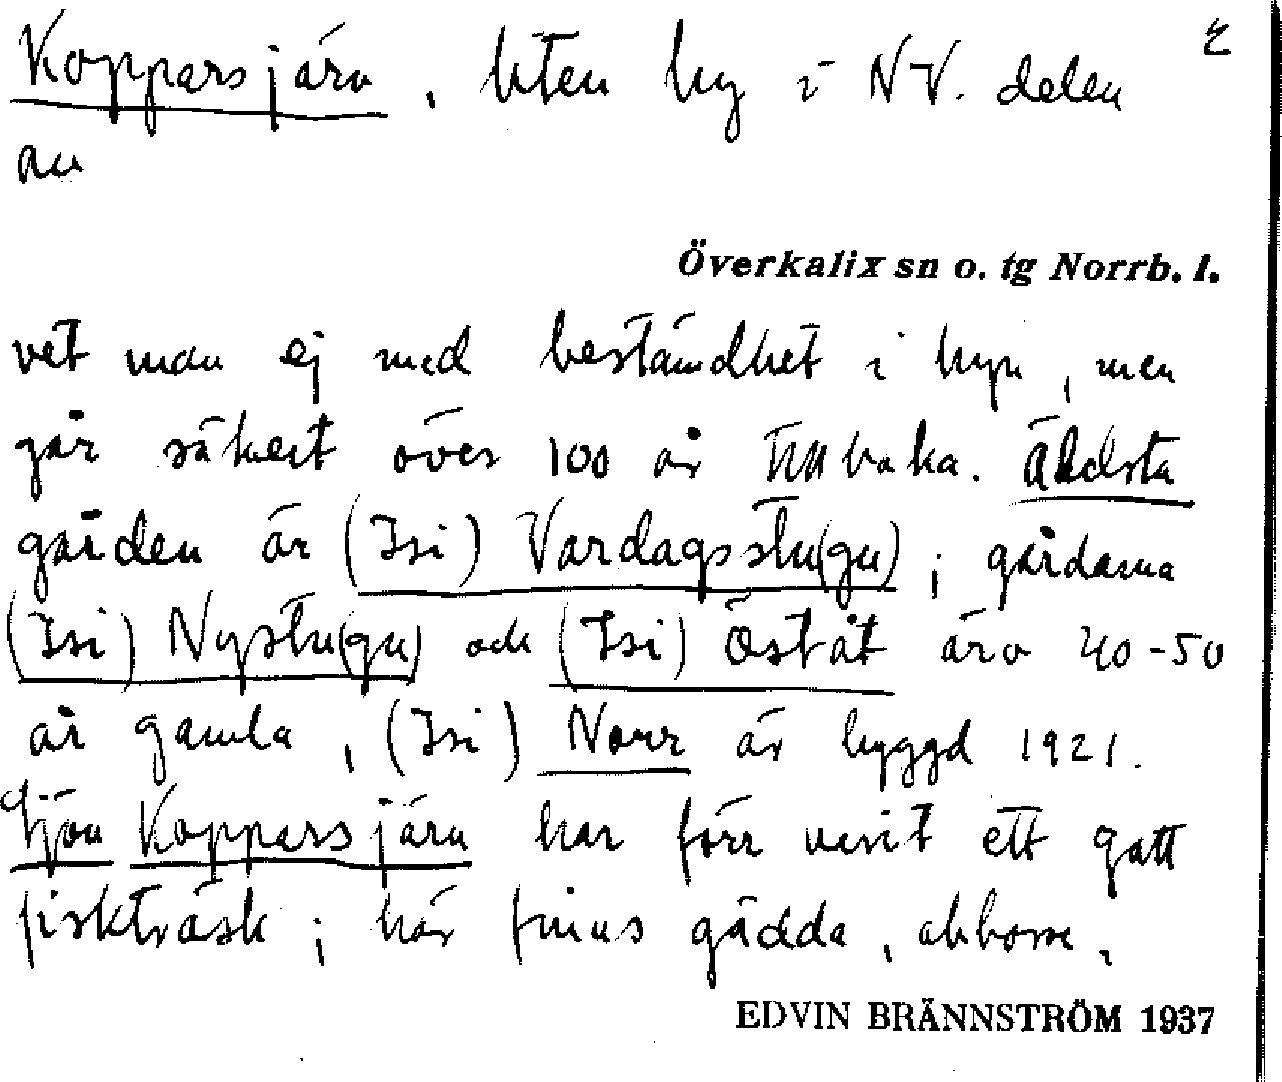 Koppars järv, liten by i NV. delen
av
Överkalix sn o. tg Norrb. l.
vet man ej med bestämdhet i byn, men
går säkert över 100 år tillbaka. Äldsta
gården är (Isi) Vardagsstu(gu); gårdarna
(Isi) Nystu(gu) och (Isi) Öståt äro 40-50
år gamla, (Isi) Norr är byggd 1921.
Sjön Koppars järv har förr varit ett gott
fiskträsk; här finns gädda, abborre,
EDVIN BRÄNNSTRÖM 1937